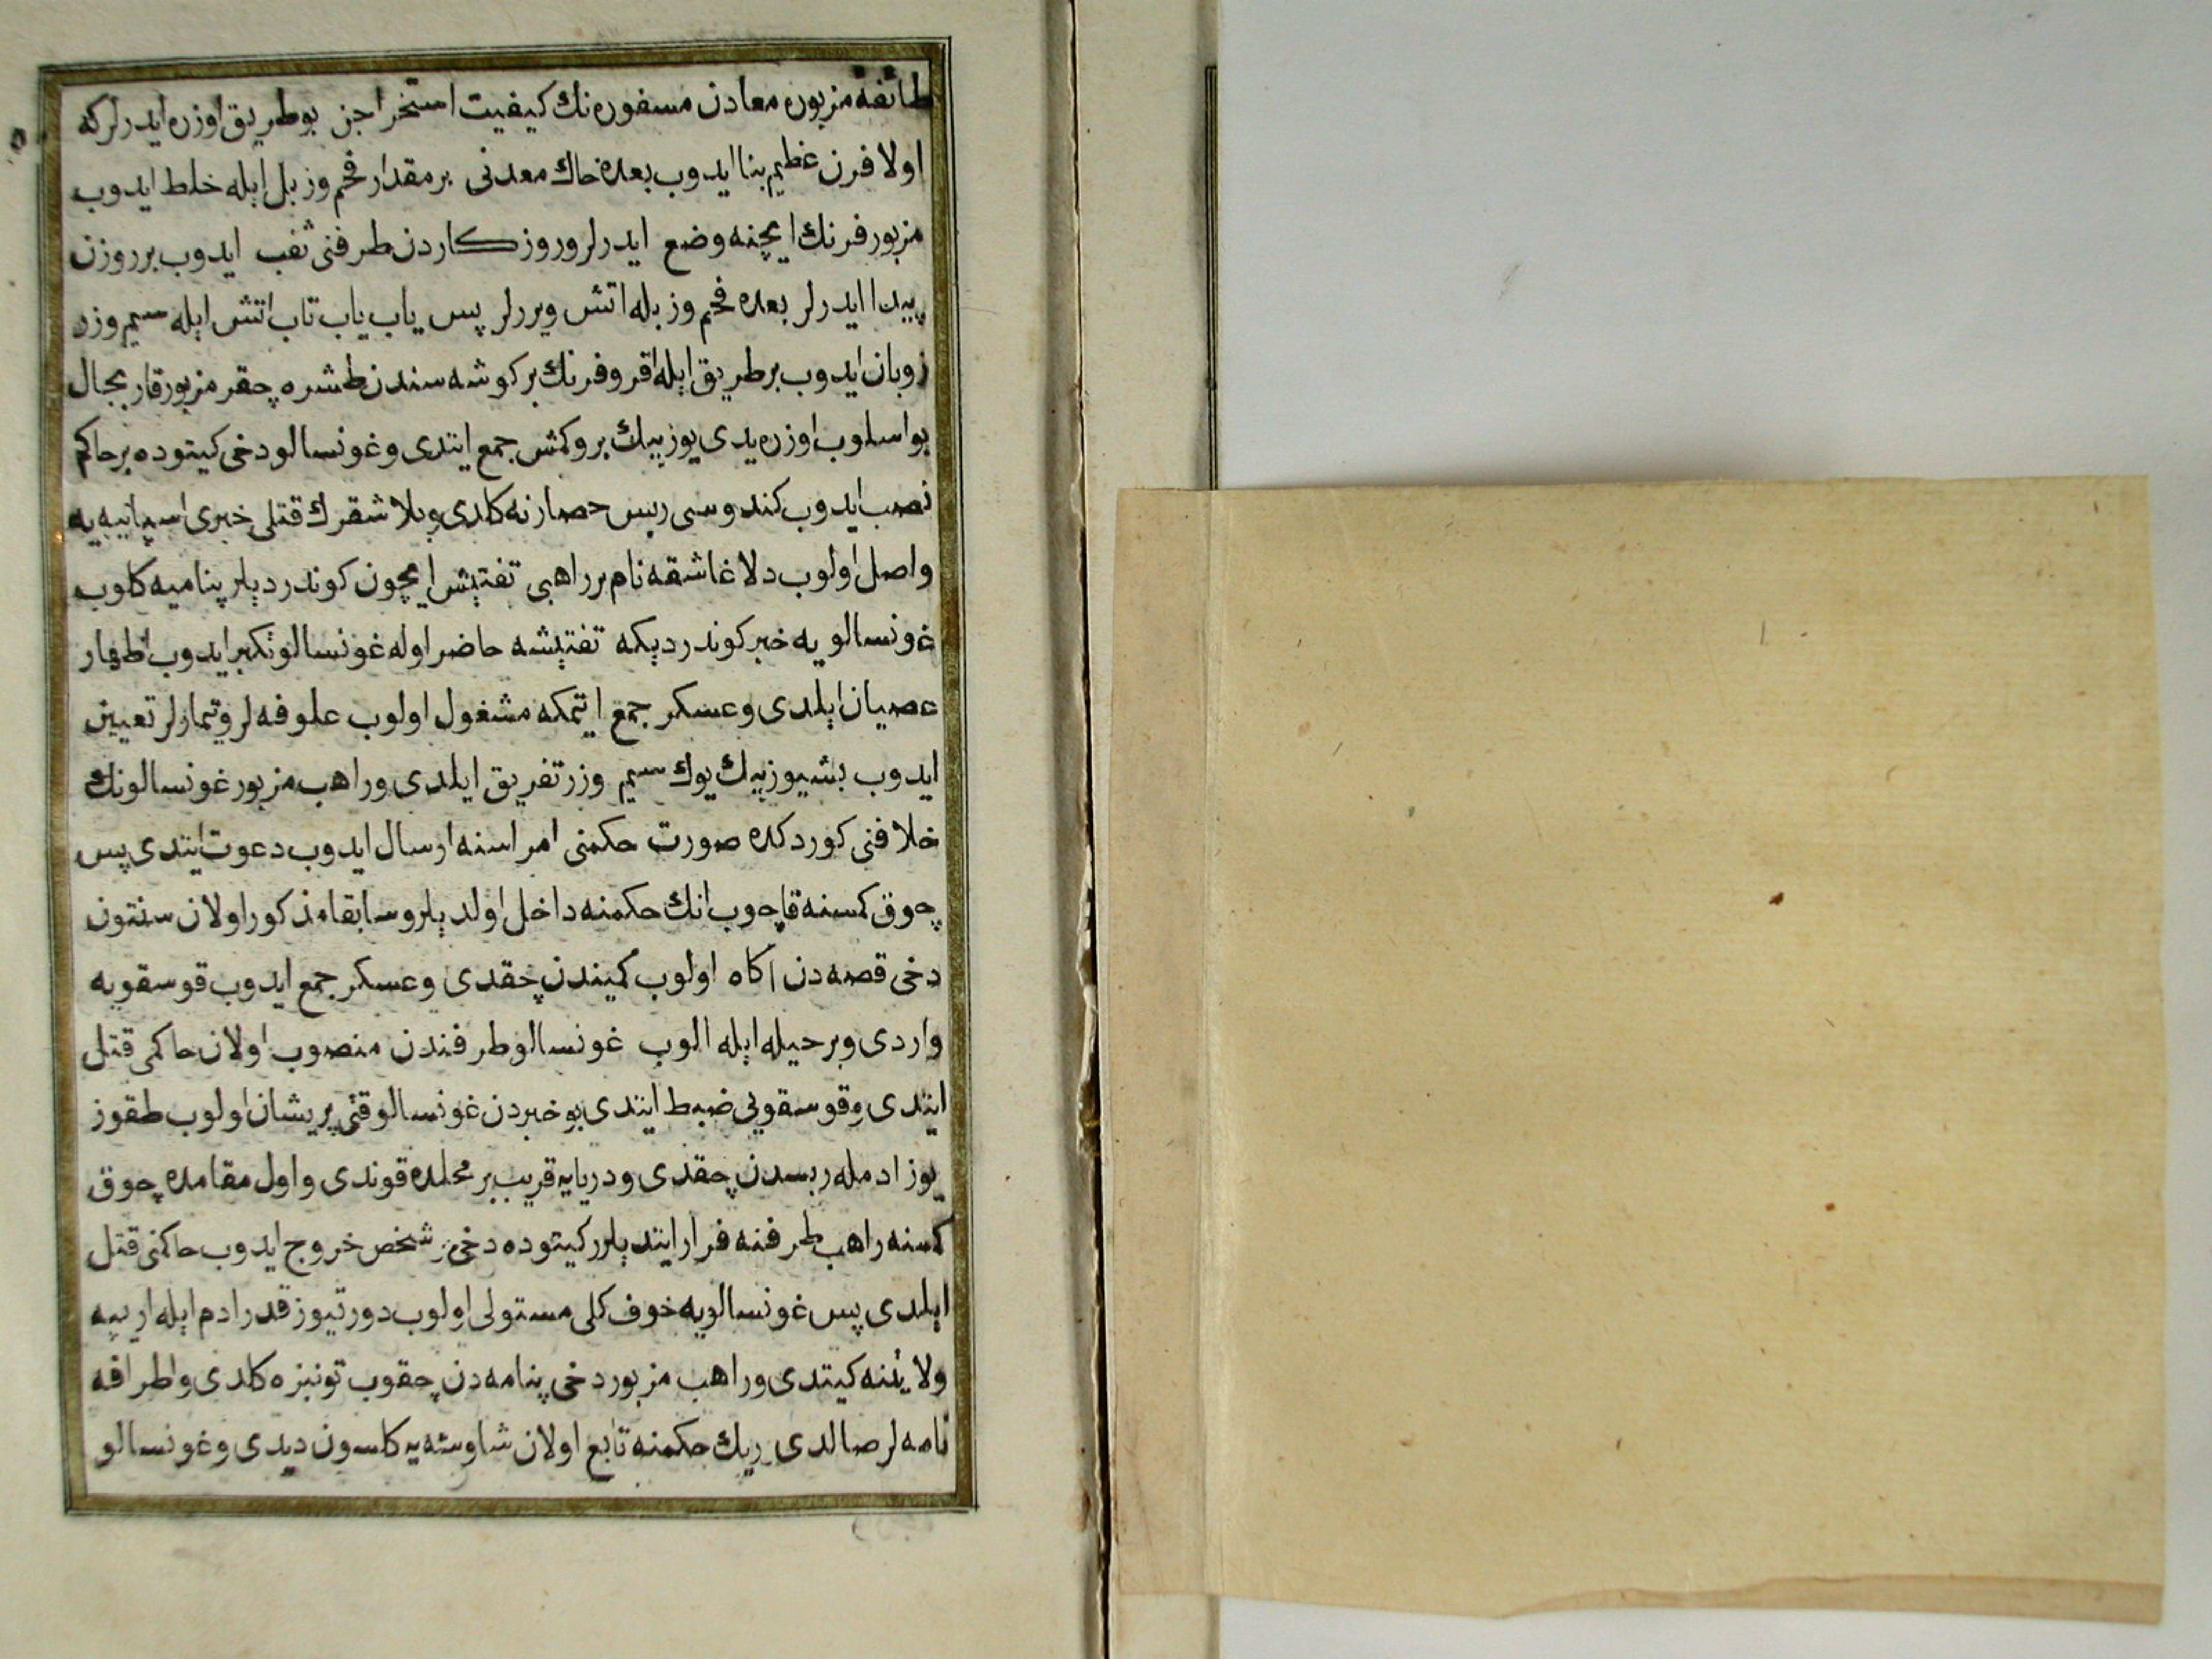 طائفهٔ مزبوره معادن مسفوره نك كيفيت استخراجن بو طريق اوزره ايدرلر كه
اولا فرن عظيم بنا ايدوب بعده خاك معدنى بر مقدار فحم و زبل ايله خلط ايدوب
مزبور فرنك ايچنه وضع ايدرلر و روزكاردن طرفنى ثقب ايدوب بر روزن
پيدا ايدرلر بعده فحم و زبله اتش ويررلر پس ياب ياب تاب اتش ايله سيم و زر
زوبان ايدوب بر طريق ايله اقر و فرنك بر كوشه سندن طشره چقر مزبور قاربجال
بو اسلوب اوزره يدى يوز بيك بروكمش جمع ايتدى و غونسالو دخى كيتوده بر حاكم
نصب ايدوب كندوسى ريس حصارنه كلدى و بلاشقرك قتلى خبرى اسپانيه يه
واصل اولوب دلاغاشقه نام بر راهبى تفتيش ايچون كوندرديلر پناميه كلوب
غونسالويه خبر كوندرديكه تفتيشه حاضر اوله غونسالو تكبر ايدوب اظهار
عصيان ايلدى و عسكر جمع ايتمكه مشغول اولوب علوفه لر و تيمارلر تعيين
ايدوب بشيوز بيك يوك سيم و زر تفريق ايلدى و راهب مزبور غونسالونك
خلافنى كوردكده صورت حكمنى امراسنه ارسال ايدوب دعوت ايتدى پس
چوق كمسنه قاچوب انك حكمنه داخل اولديلر و سابقا مذكور اولان سنتون
دخى قصه دن آكاه اولوب كميندن چقدى و عسكر جمع ايدوب قوسقويه
واردى و بر حيله ايله الوب غونسالو طرفندن منصوب اولان حاكمى قتل
ايتدى و قوسقويى ضبط ايتدى بو خبردن غونسالو قتى پريشان اولوب طقوز
يوز ادمله ريسدن چقدى و دريايه قريب بر محلده قوندى و اول مقامده چوق
كمسنه راهب طرفنه فرار ايتديلر كيتوده دخى بر شخص خروج ايدوب حاكمنى قتل
ايلدى پس غونسالويه خوف كلى مستولى اولوب دورتيوز قدر ادم ايله
ولايتنه كيتدى و راهب مزبور دخى پنامه دن چقوب تونبزه كلدى و اطرافه
نامه لر صالدى ريك حكمنه تابع اولان شاوسته يه كلسون ديدى و غونسالو